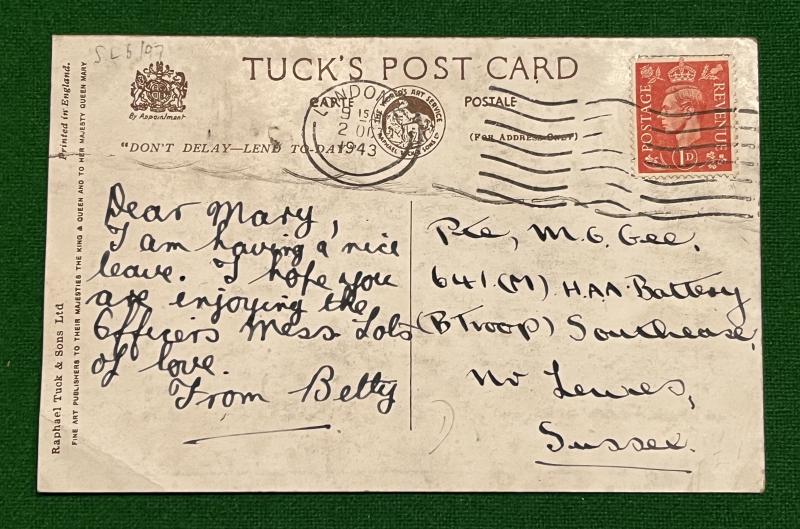 S L 6/97
TUCK'S POST CARD
By Appointment
CARTE POSTALE
(FOR ADDRESS ONLY)
"DON'T DELAY—LEND TO-DAY"
LONDON
9 15
2 OC
1943
THE WORLD'S ART SERVICE
RAPHAEL TUCK & SONS LTD
POSTAGE REVENUE
1D
Printed in England.
Raphael Tuck & Sons Ltd
FINE ART PUBLISHERS TO THEIR MAJESTIES THE KING & QUEEN AND TO HER MAJESTY QUEEN MARY
Dear Mary,
I am having a nice
leave. I hope you
are enjoying the
Officers Mess Lots
of love.
From Betty
Pte, M. G. Gee.
641.(M) H.A.A. Battery
(B Troop) Southease,
Nr Lewes,
Sussex.